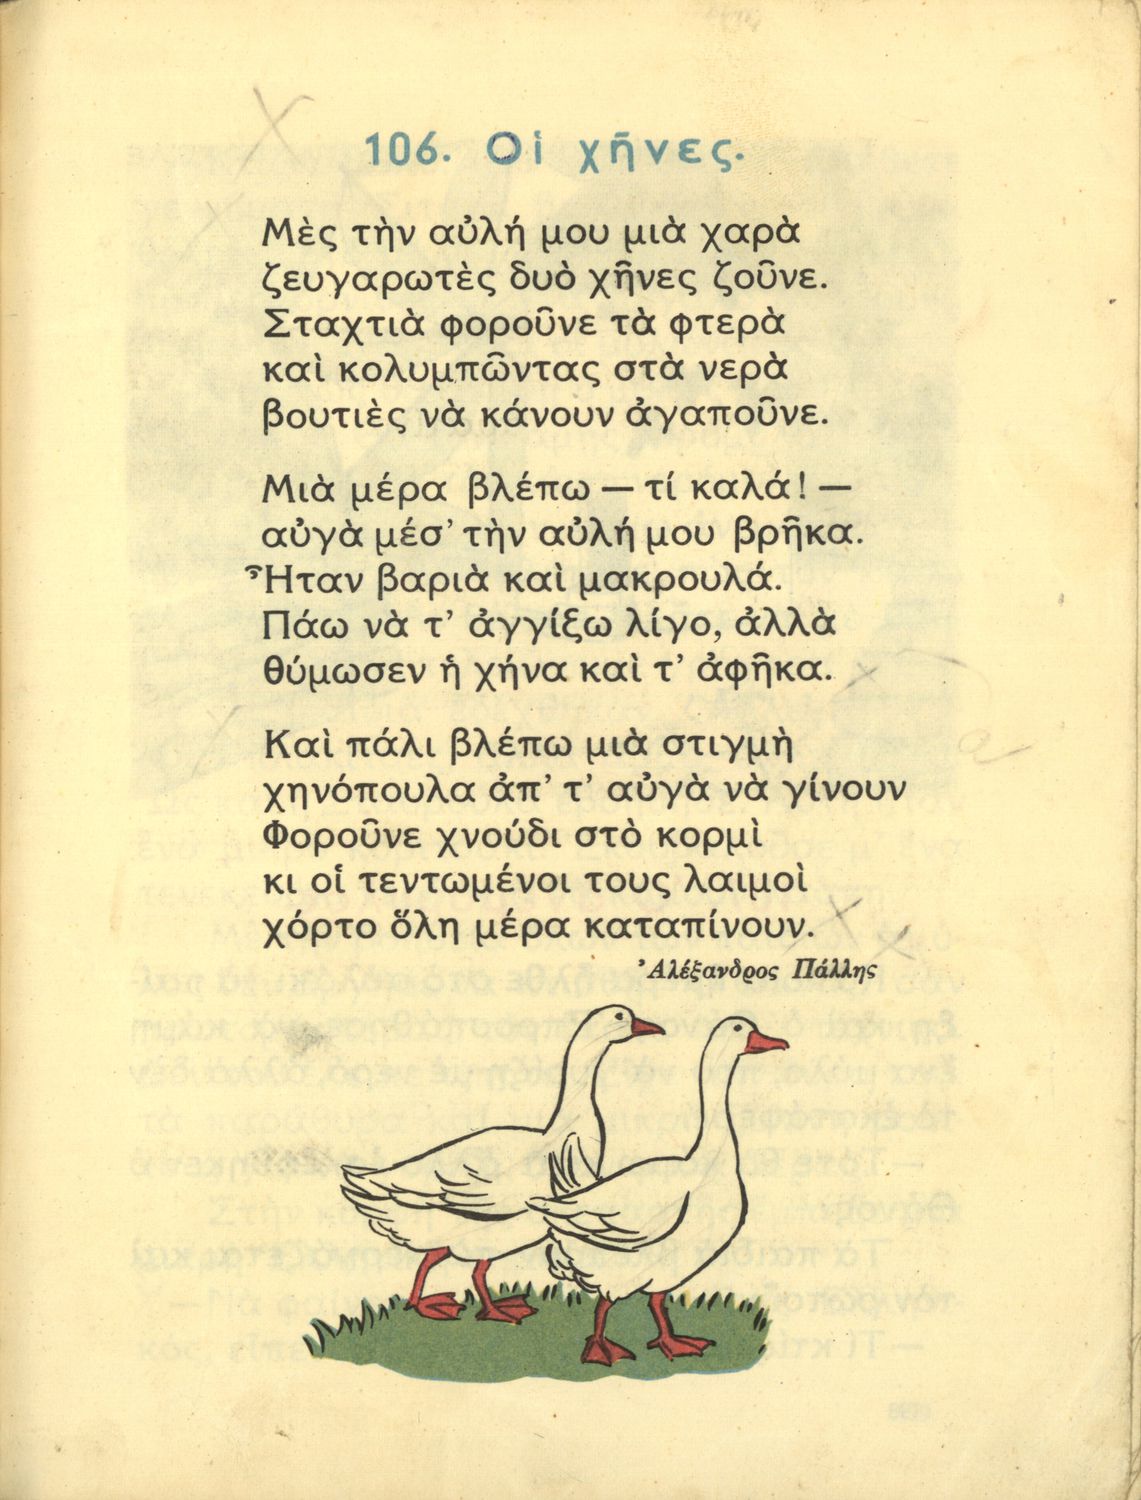 106. Οἱ χῆνες.
Μὲς τὴν αὐλή μου μιὰ χαρὰ
ζευγαρωτὲς δυὸ χῆνες ζοῦνε.
Σταχτιὰ φοροῦνε τὰ φτερὰ
καὶ κολυμπῶντας στὰ νερὰ
βουτιὲς νὰ κάνουν ἀγαποῦνε.
Μιὰ μέρα βλέπω — τί καλά! —
αὐγὰ μέσ’ τὴν αὐλή μου βρῆκα.
Ἦταν βαριὰ καὶ μακρουλά.
Πάω νὰ τ’ ἀγγίξω λίγο, ἀλλὰ
θύμωσεν ἡ χήνα καὶ τ’ ἀφῆκα.
Καὶ πάλι βλέπω μιὰ στιγμὴ
χηνόπουλα ἀπ’ τ’ αὐγὰ νὰ γίνουν
Φοροῦνε χνούδι στὸ κορμὶ
κι οἱ τεντωμένοι τους λαιμοὶ
χόρτο ὅλη μέρα καταπίνουν.
Ἀλέξανδρος Πάλλης